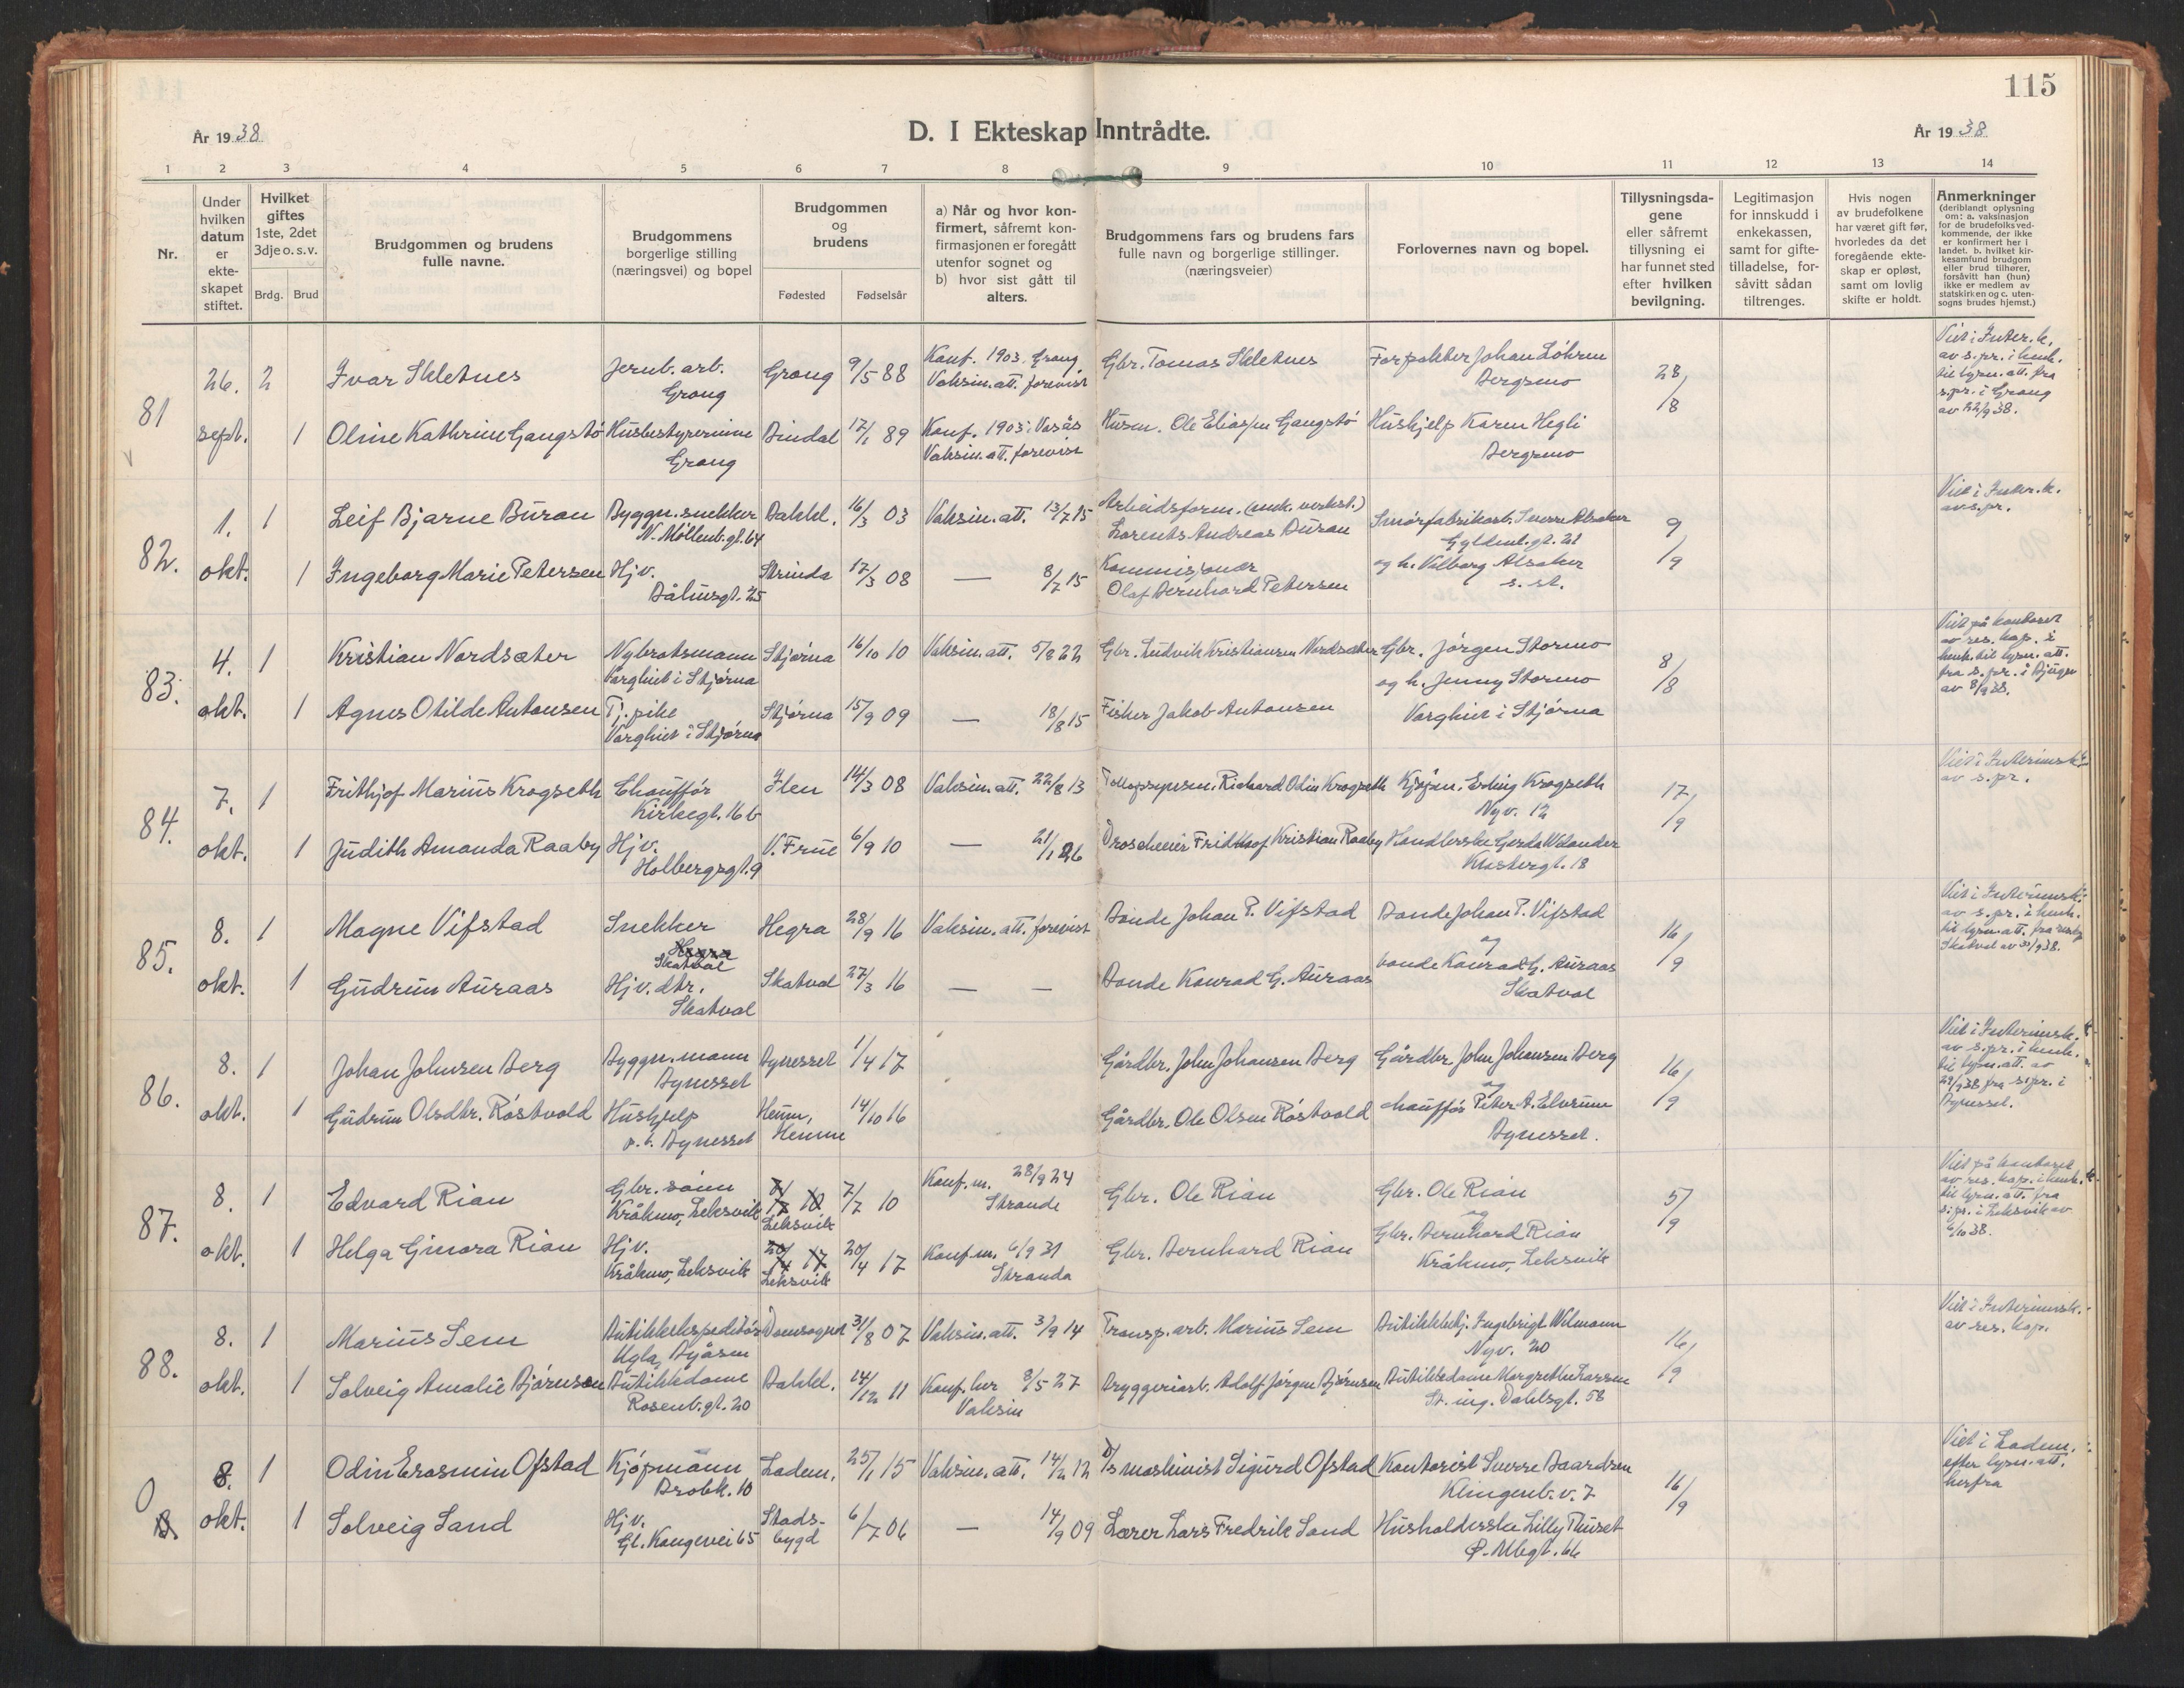 115
År 1938
D. I Ekteskap Inntrådte.
År 1938
1 2 3 4 5 6 7 8 9 10 11 12 13 14
Nr.
Under hvilken datum er ekte-skapet stiftet.
Hvilket giftes 1ste, 2det 3dje o. s. v.
Brdg. Brud
Brudgommen og brudens fulle navne.
Brudgommens borgerlige stilling (næringsvei) og bopel
Brudgommen og brudens
Fødested Fødselsår
a) Når og hvor kon-firmert, såfremt kon-firmasjonen er foregått utenfor sognet og b) hvor sist gått til alters.
Brudgommens fars og brudens fars fulle navn og borgerlige stillinger. (næringsveier)
Forlovernes navn og bopel.
Tillysningsda-gene eller såfremt tillysning ei har funnet sted efter hvilken bevilgning.
Legitimasjon for innskudd i enkekassen, samt for gifte-tilladelse, for-såvitt sådan tiltrenges.
Hvis nogen av brudefolkene har været gift før, hvorledes da det foregående ekte-skap er opløst, samt om lovlig skifte er holdt.
Anmerkninger (deriblandt oplysning om: a. vaksinasjon for de brudefolks ved-kommende, der ikke er konfirmert her i landet. b. hvilket kir-kesamfund brudgom eller brud tilhører, forsåvitt han (hun) ikke er medlem av statskirken og c. uten-sogns brudes hjemst.)
81
26. sept.
2 Ivar Skletnes Jernb. arb. Grong Grong 9/5 88 Konf. 1903, Grong Vaksin. att. forevist Gbr. Tomas Skletnes Forpakter Johan Løhren Bergsmo
28/8
Viet i Inter. k. av s. pr. i henh. til lysn. att. fra s. pr. i Grong av 22/9 38.
1 Oline Kathrine Gangstø Husbestyrerinne Grong Bindal 17/1 89 Konf. 1903, Vasås Vaksin. att. forevist Husm. Ole Eliassen Gangstø Hushjelp Karen Hegli Bergsmo
82.
1. okt.
1 Leif Bjarne Buran Byggn. snekker N. Møllenb. gt. 64 Bakkl. 16/3 03 Vaksin. att. 13/7 15 Arbeidsform. (mek. verkst.) Lorents Andreas Buran Smørfabrikarb. Sverre Alsaker Gyldenl. gt. 21
9/9
Viet i Inter. k. av s. pr.
1 Ingeborg Marie Petersen Hjv. Båhusgt. 25 Strinda 17/3 08 — 8/7 15 Kommisjonær Olaf Bernhard Petersen og h. Valborg Alsaker s. st.
83.
4. okt.
1 Kristian Nordsæter Nybrotsmann Varghiet i Stjørna Stjørna 16/10 10 Vaksin. att. 5/8 22 Gbr. Ludvik Kristiansen Nordsæter Gbr. Jørgen Stormo
8/8
Viet på kontoret av res. kap. i henh. til lysn. att. fra s. pr. i Bjugn av 8/9 38.
1 Agnes Otilde Antonsen Tj. pike Varghiet i Stjørna Stjørna 15/9 09 — 18/8 15 Fisker Jakob Antonsen og h. Jenny Stormo Varghiet i Stjørna
84.
7. okt.
1 Frithjof Marius Krogseth Chauffør Kirkegt. 16 b Ilen 14/3 08 Vaksin. att. 22/8 13 Tollopsynsm. Richard Odin Krogseth Kjøpm. Erling Krogseth Nyv. 12
17/9
Viet i Interimsk. av s. pr.
1 Judith Amanda Raaby Hjv. Holbergsgt. 9 V. Frue 6/9 10 — 21/1 26 Droscheeier Fridthjof Kristian Raaby Handlerske Gerda Welander Klostergt. 18
85.
8. okt.
1 Magne Vifstad Snekker Hegra Skatval Hegra 28/9 16 Vaksin. att. forevist Bonde Johan P. Vifstad Bonde Johan P. Vifstad og
16/9
Viet i Interimsk. av s. pr. i henh. til lysn. att. fra Skatval av 30/9 38.
1 Gudrun Auraas Hjv. dtr. Skatval Skatval 27/3 16 — — Bonde Konrad G. Auraas bonde Konrad G. Auraas Skatval
86.
8. okt.
1 Johan Johnsen Berg Byggn. mann Bynesset Bynesset 1/4 17 Gårdbr. John Johansen Berg Gårdbr. John Johansen Berg og
16/9
Viet i Interimsk. av s. pr. i henh. til lysn. att. av 29/9 38 fra s. pr. i Bynesset.
1 Gudrun Olsdtr. Røstvold Hushjelp p. t. Bynesset Heim, Hemne 14/10 16 Gårdbr. Ole Olsen Røstvold chauffør Peter A. Elvrum Bynesset.
87.
8. okt.
1 Edvard Rian Gbr. sønn Kråkmo, Leksvik 7/7 10 Leksvik 7/7 10 Konf. m. 28/9 24 Stranda Gbr. Ole Rian Gbr. Ole Rian og
5/9
Viet på kontoret av res. kap. i henh. til lysn. att. fra s. pr. i Leksvik av 6/10 38.
1 Helga Gjinora Rian Hjv. Kråkmo, Leksvik 20/4 17 Leksvik 20/4 17 Konf. m. 6/9 31 Stranda Gbr. Bernhard Rian Gbr. Bernhard Rian Kråkmo, Leksvik
88.
8. okt.
1 Marius Sem Butikkekspeditør Ugla, Byåsen Domsognet 31/8 07 Vaksin. att. 3/9 14 Transp. arb. Marius Sem Butikkbetj. Ingebrigt Wilmann Nyv. 20
16/9
Viet i Interimsk. av res. kap.
1 Solveig Amalie Bjørnson Butikkdame Rosenb. gt. 20 Bakkl. 14/12 11 Konf. her 8/5 27 Vaksin Bryggeriarb. Adolf Jørgen Bjørnsen Butikkdame Margrethe Larssen St. ing. Dahlsgt. 58
0
8. okt.
1 Odin Erasmin Ofstad Kjøpmann Brobk. 10 Ladem. 25/1 15 Vaksin. att. 14/2 12 D/s maskinist Sigurd Ofstad Kontorist Sverre Baardsen Klingenb. v. 7
16/9
Viet i Ladem. efter lysn. att. herfra
1 Solveig Sand Hjv. Gl. Kongevei 65 Stads-bygd 6/7 06 — 14/9 09 Lærer Lars Fredrik Sand Husholderske Lilly Thuset